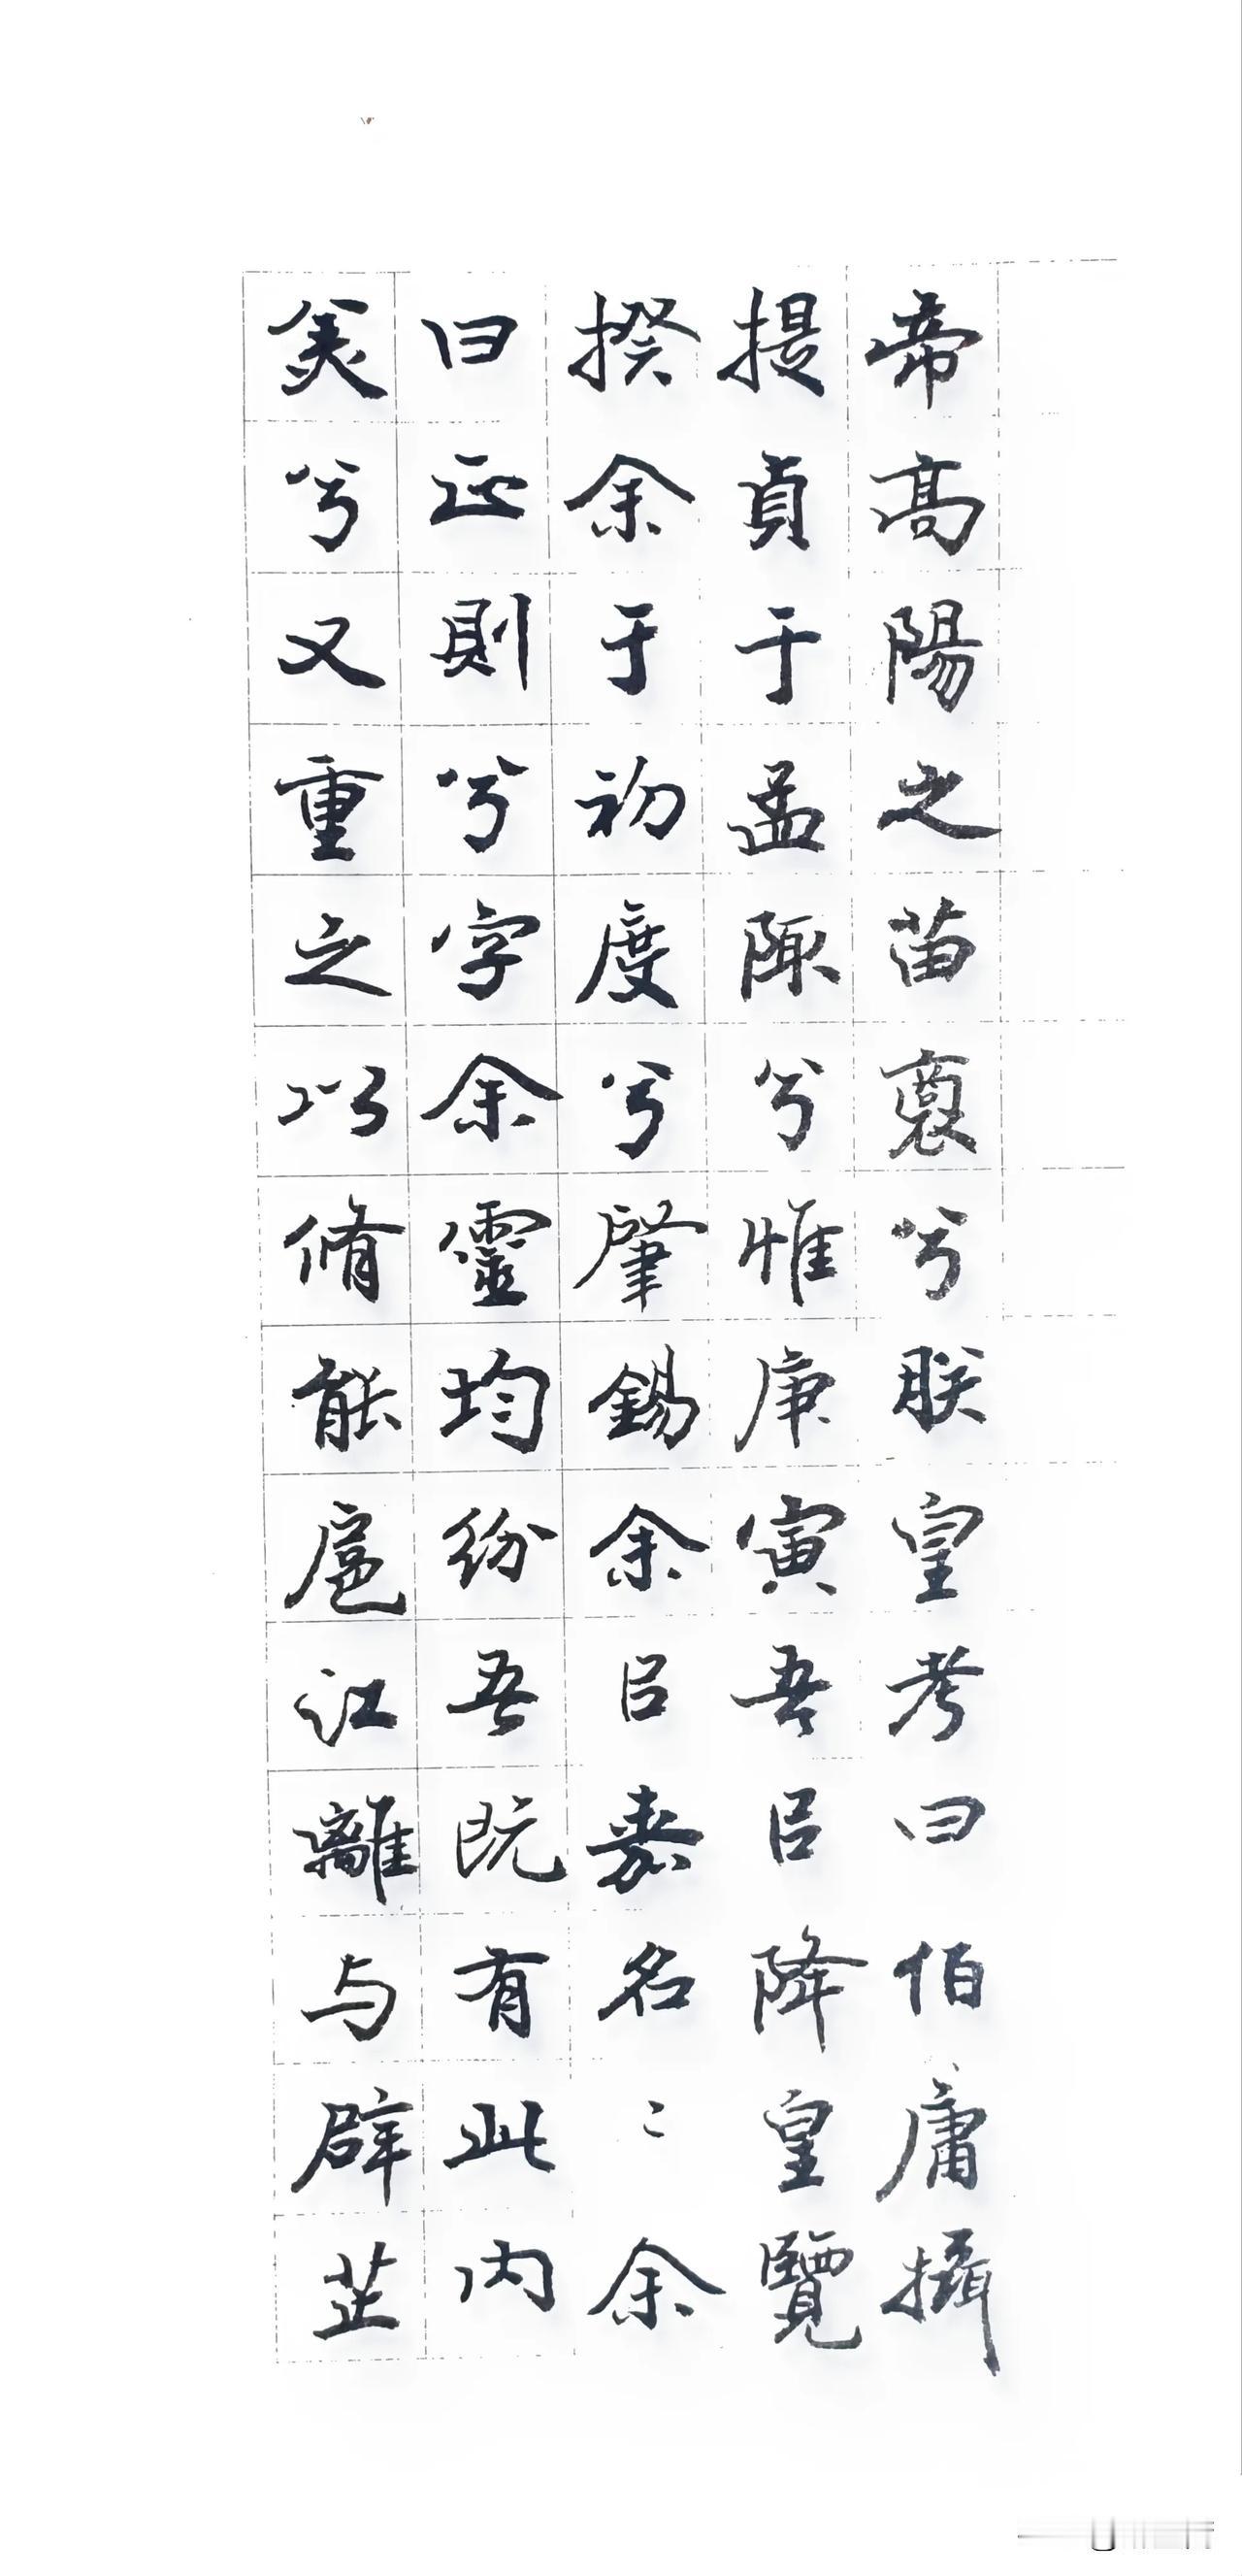 帝高陽之苗裔兮朕皇考曰伯庸攝
提貞于孟陬兮惟庚寅吾吕降皇覽
揆余于初度兮肇錫余吕嘉名〻余
曰正則兮字余靈均紛吾既有此内
美兮又重之以脩能扈江離与辟芷